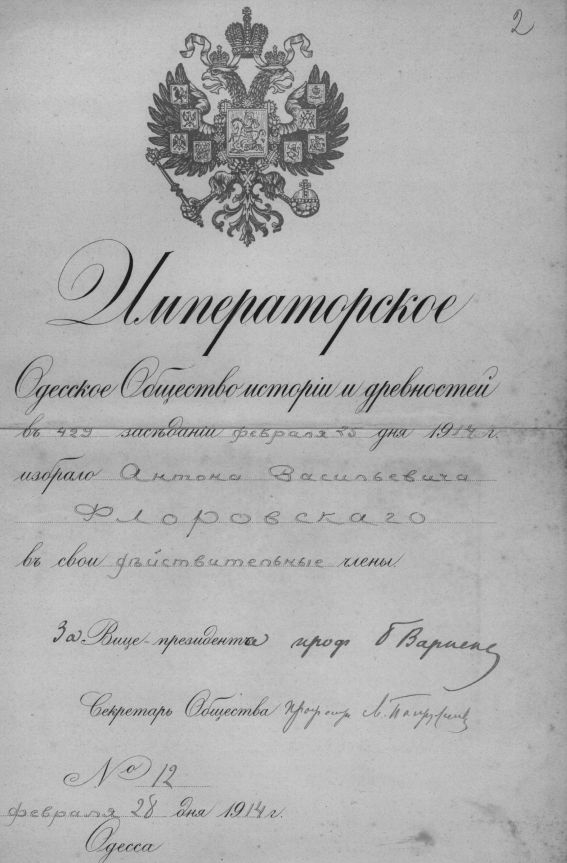 2
Императорское
Одесское Общество исторіи и древностей
въ 429 засѣданіи февраля 25 дня 1914 г.
избрало Антона Васильевича
Флоровскаго
въ свои дѣйствительные члены.
За Вице-президента проф Б Варнеке
Секретарь Общества
№ 12
февраля 28 дня 1914 г.
Одесса